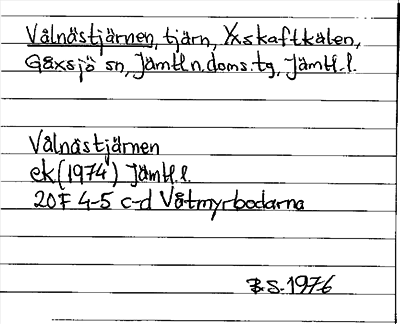 Vålnästjärnen, tjärn, Yxskaftkälen,
Gåxsjö sn, Jämtl.n.doms.tg, Jämtl.l.
Vålnästjärnen
ek (1974) Jämtl.l.
20F 4-5 c-d Våtmyrbodarna
B.S. 1976